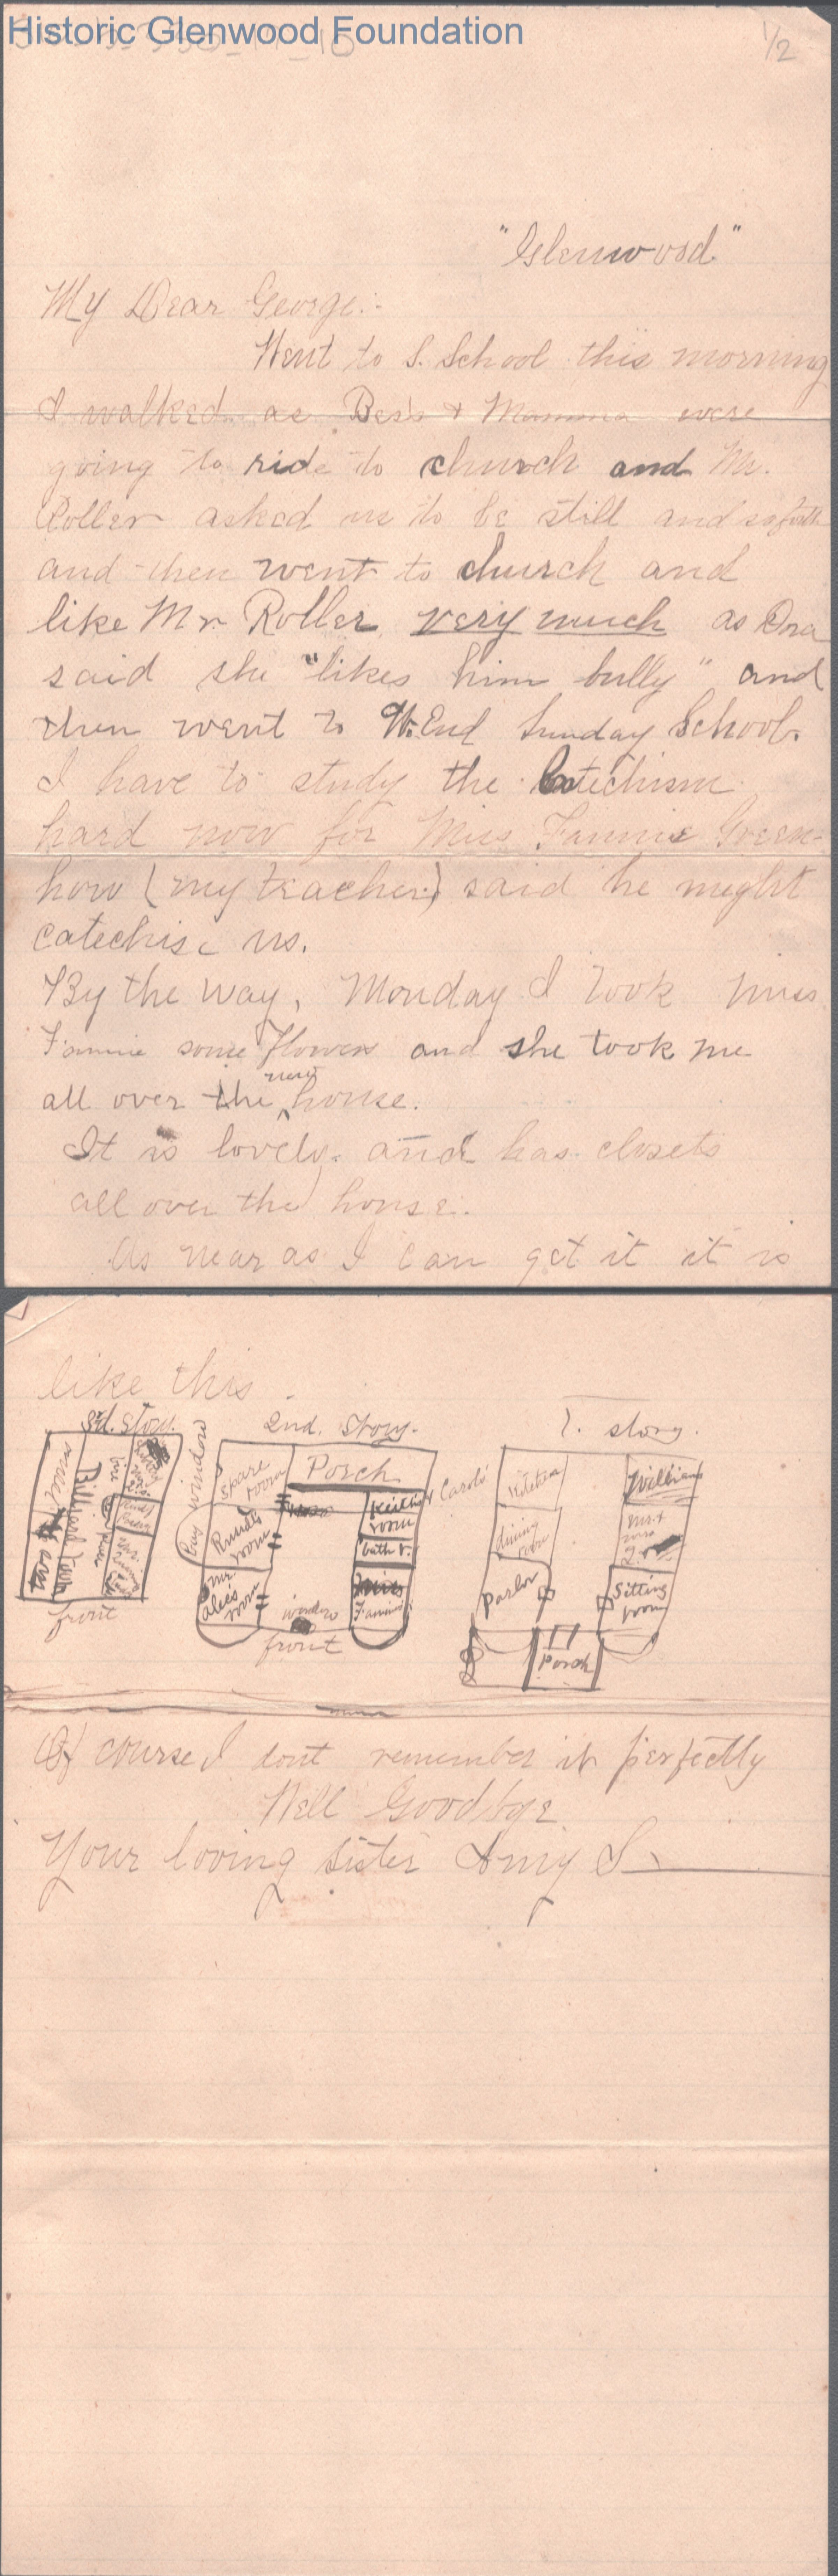 Historic Glenwood Foundation
1/2
"Glenwood"
My Dear George:-
Went to S. School this morning
I walked as Bess & Mamma were
going to ride to church and Mr.
Roller asked us to be still and so forth
and then went to church and
like Mr. Roller very much as Ora
said she "likes him bully" and
then went to W. End Sunday School.
I have to study the Catechism
hard now for Miss Fannie Green-
how (my teacher) said he meght
catechise us.
By the way, Monday I took Miss
Fannie some flowers and she took me
all over the new house.
It is lovely. and has closets
all over the house.
As near as I can get it it is
like this.
3d. Story.
Billiard Table
front
2nd. Story.
Bay window
spare room
Porch
room
Mr
room
Keith & Carols
room
bath r.
Miss Fannie
window
front
1. story.
Kitchen
dining room
Parlor
Sitting room
Porch
Of course I dont remember it perfectly
Well Goodbye
Your loving sister Amy S